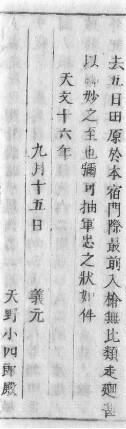 去五日田原於本宿門際最前入槍無比類走廻
以妙之至也彌可抽軍忠之狀如件
天文十六年
九月十五日
義元
天野小四郎殿